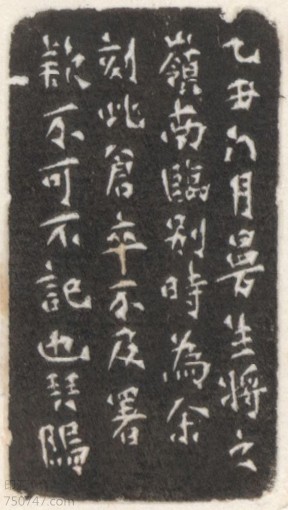 乙丑六月曼生將之
嶺南臨別時為余
刻此倉卒不及署
款不可不記也琴隖
750747.com